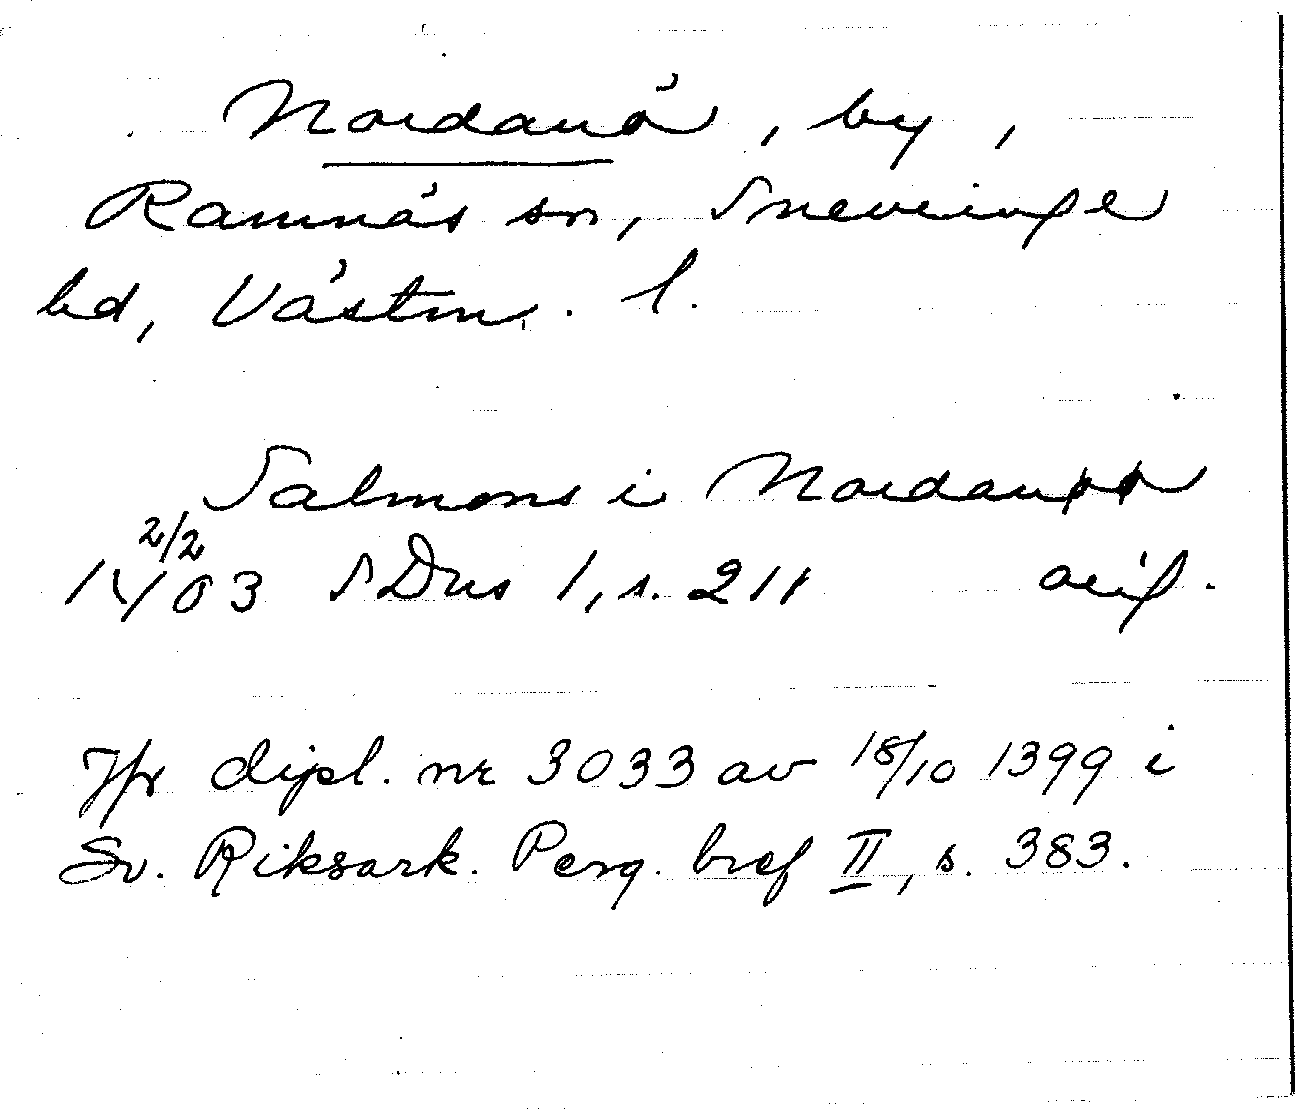 Nordanö, by,
Ramnäs sn, Snevringe
hd, Västm. l.
Salmons i Nordanøø
2/2
1403 SDns 1, s. 211 orig.
Jfr dipl. nr 3033 av 18/10 1399 i
Sv. Riksark. Perg. bref II, s. 383.